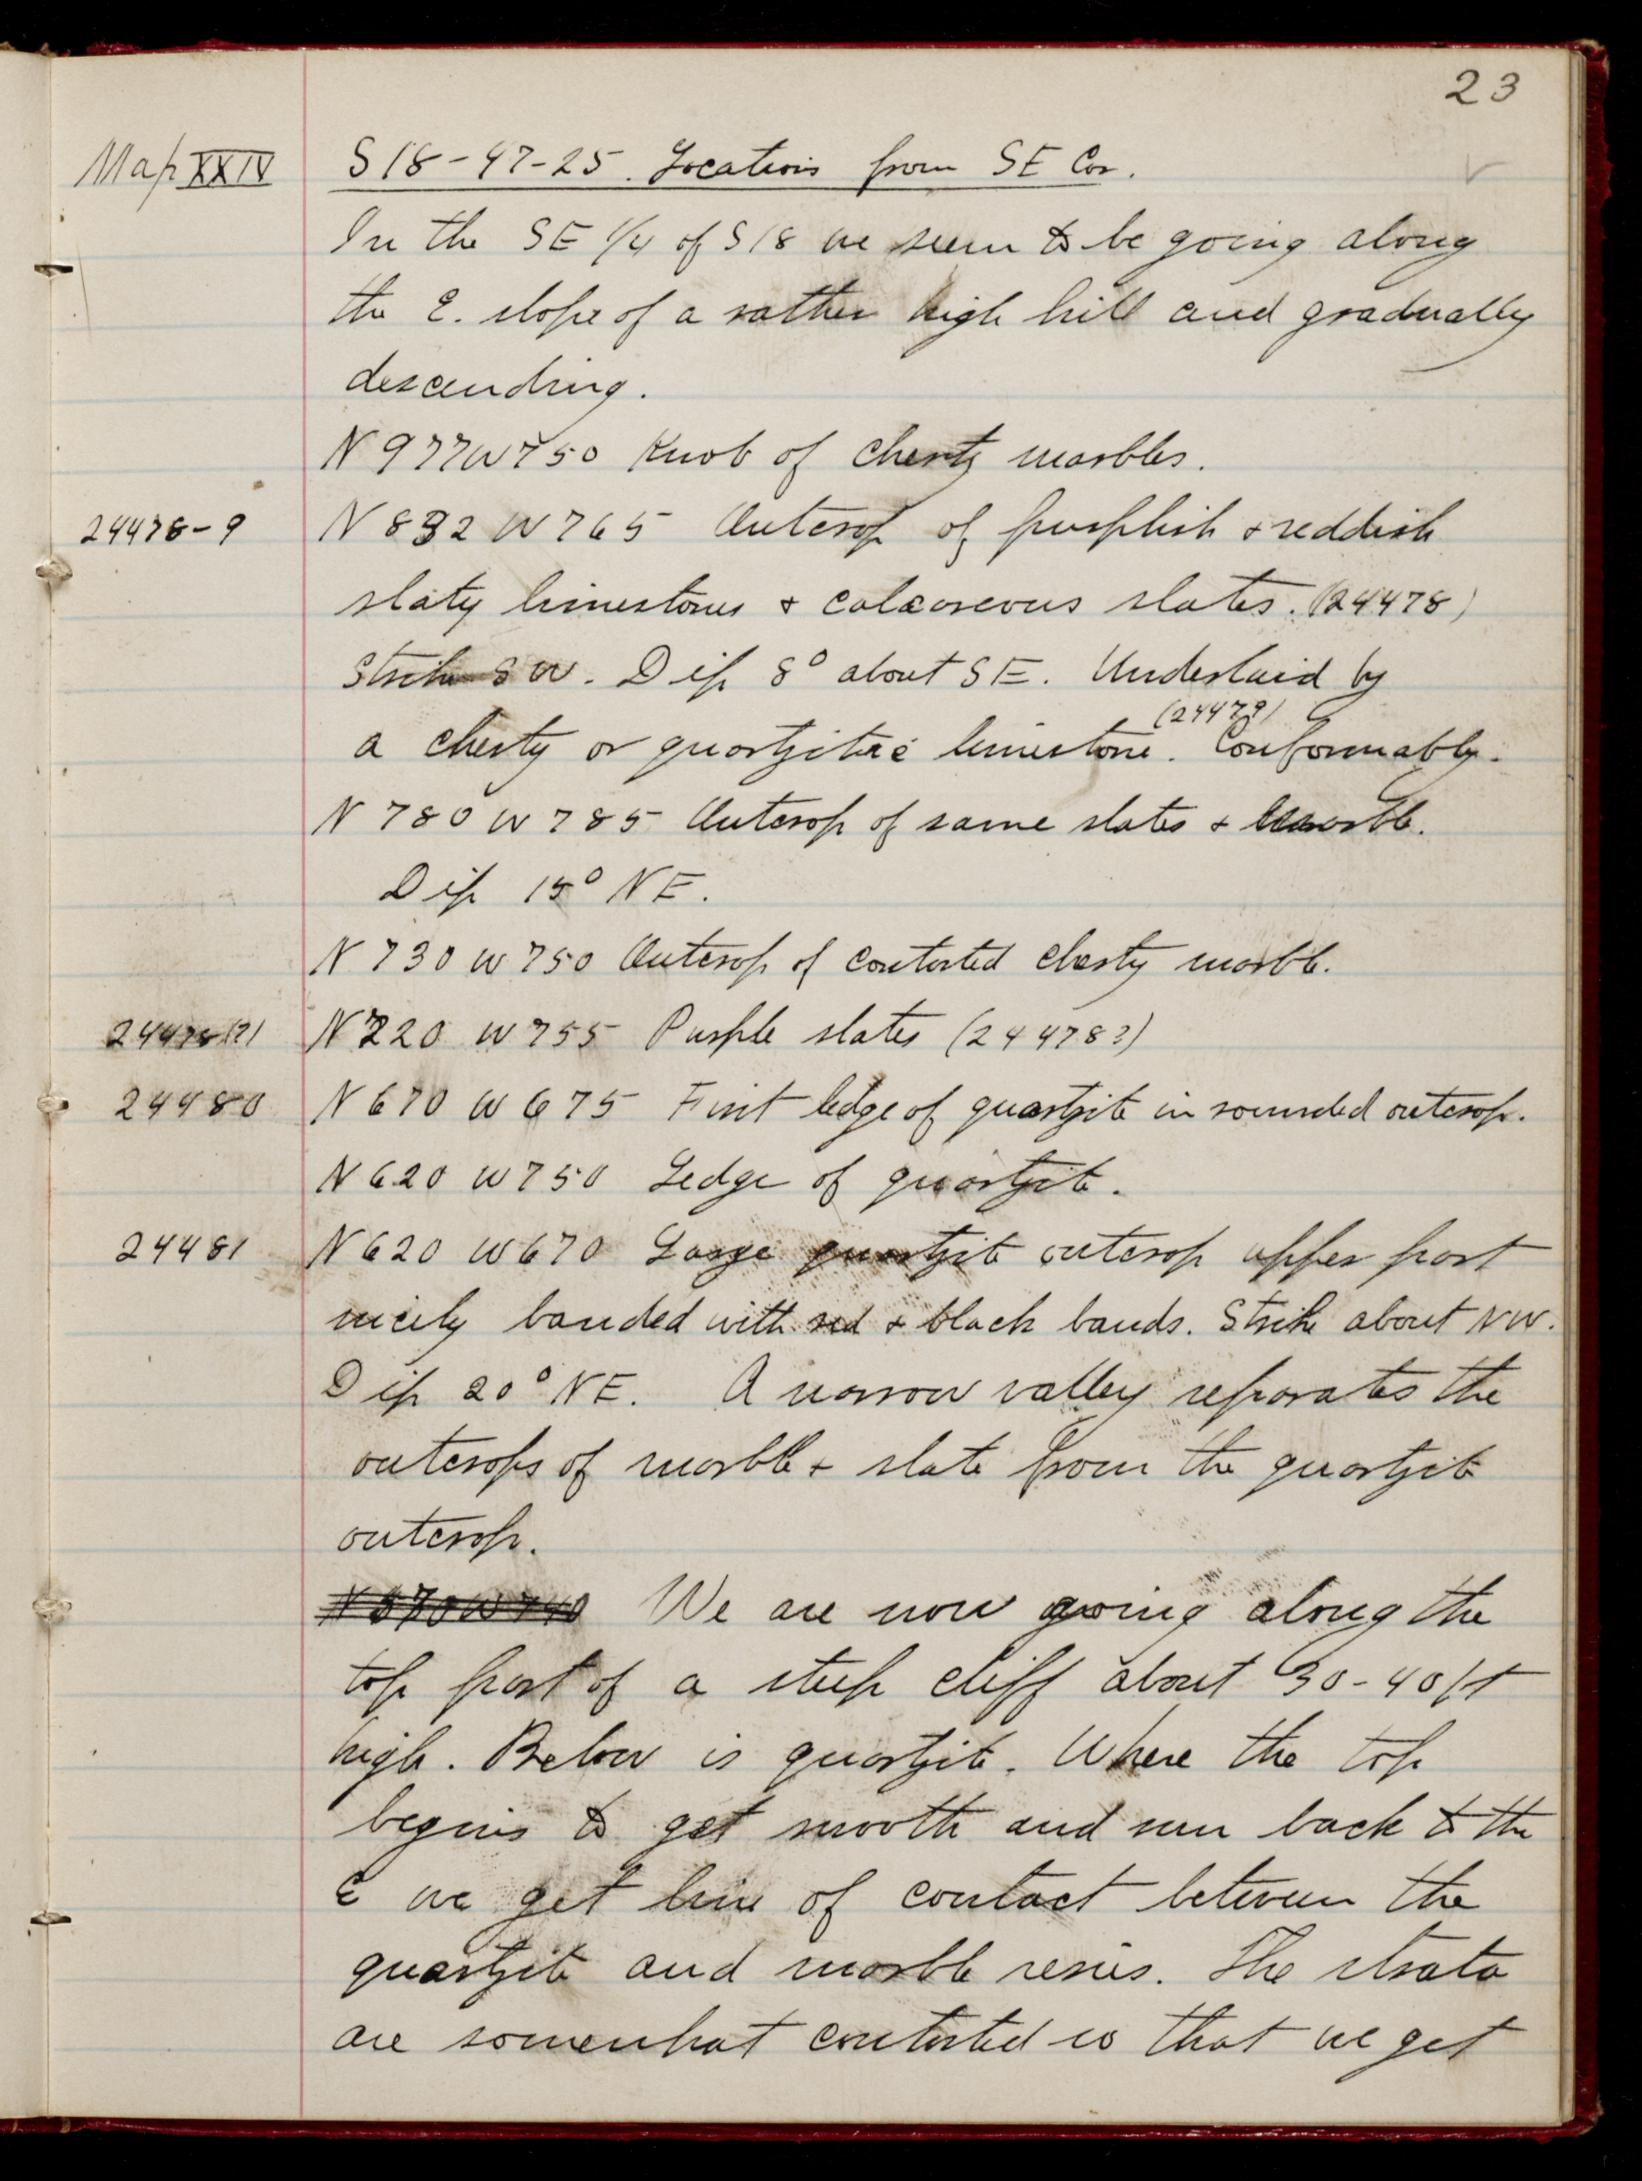 23
Map XXIV S18-47-25. Locations from SE Cor.
In the SE 1/4 of S18 we seem to be going along
the E. slope of a rather high hill and gradually
descending.
N 977 W 750 Knob of cherty marbles.
24478-9 N 832 W 765 Outcrop of purplish & reddish
slaty limestones & calcareous slates. (24478)
Strike SW. Dip 8° about SE. Underlaid by
(24479)
a cherty or quartzitic limestone. Conformably.
N 780 W 785 Outcrop of same slates & marble.
Dip 15° NE.
N 730 W 750 Outcrop of contorted cherty marble.
24478(?) N 720 W 755 Purple slates (24478?)
24480 N 670 W 675 First ledge of quartzite in rounded outcrop.
N 620 W 750 Ledge of quartzite.
24481 N 620 W 670 Large quartzite outcrop upper part
nicely banded with red & black bands. Strike about NW.
Dip 20° NE. A narrow valley separates the
outcrops of marble & slate from the quartzite
outcrop.
We are now going along the
top part of a steep cliff about 30-40 ft
high. Below is quartzite. Where the top
begins to get smooth and run back to the
E we get line of contact between the
quartzite and marble series. The strata
are somewhat contorted so that we get